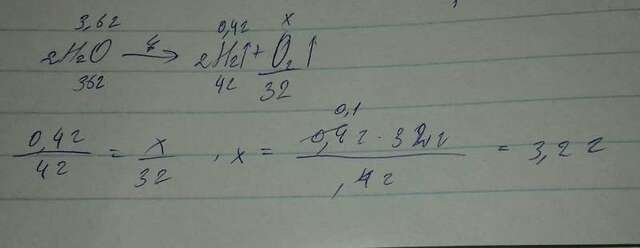 3,6г 0,4г x
2H₂O —↯→ 2H₂↑ + O₂↑
36г 4г 32
0,4г/4г = x/32 , x = 0,4г · 32г/4г = 3,2 г
0,1